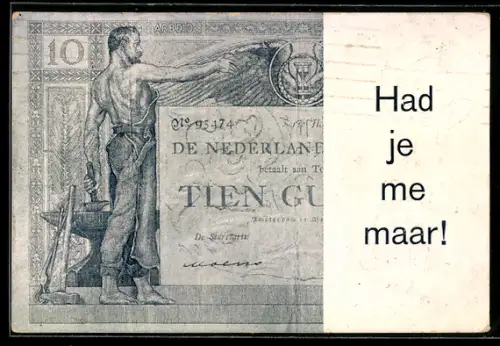 10
ARBEID
No 95474
DE NEDERLAND
betaalt aan To
TIEN GU
Amsterdam
De Secretaris
Had
je
me
maar!